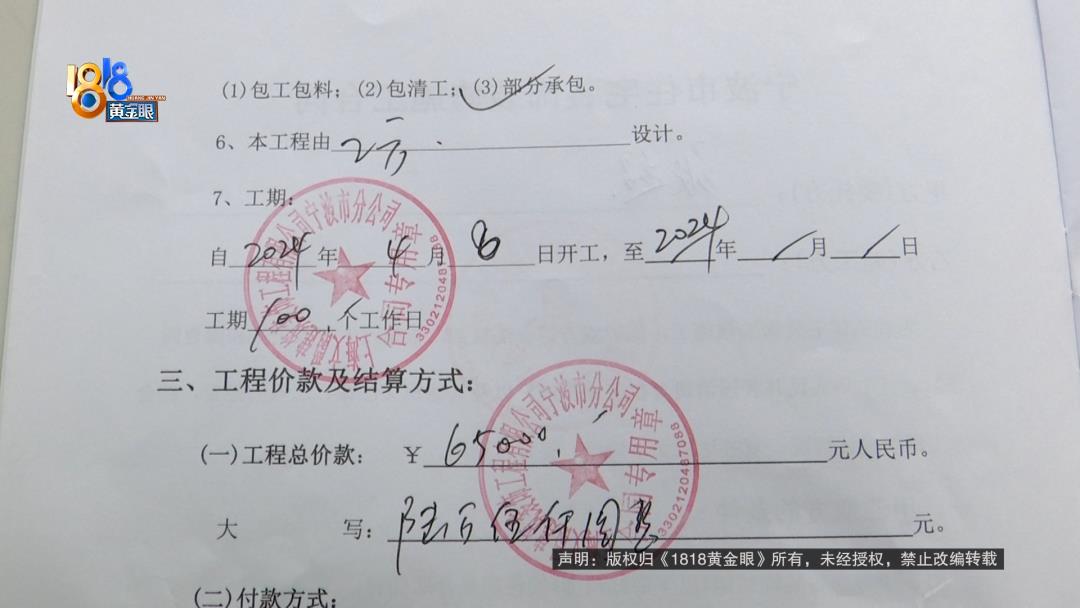 1818
HUANG JIN YAN
黄金眼
(1)包工包料；(2)包清工；(3)部分承包。
6、本工程由乙方设计。
7、工期：
自2024年4月8日开工，至2024年/月/日
工期100个工作日
三、工程价款及结算方式：
(一)工程总价款：￥65000元人民币。
大写：陆万伍仟圆整元。
(二)付款方式：
工程有限公司宁波市分公司
合同专用章
3302120487088
工程有限公司宁波市分公司
合同专用章
3302120487088
声明：版权归《1818黄金眼》所有，未经授权，禁止改编转载